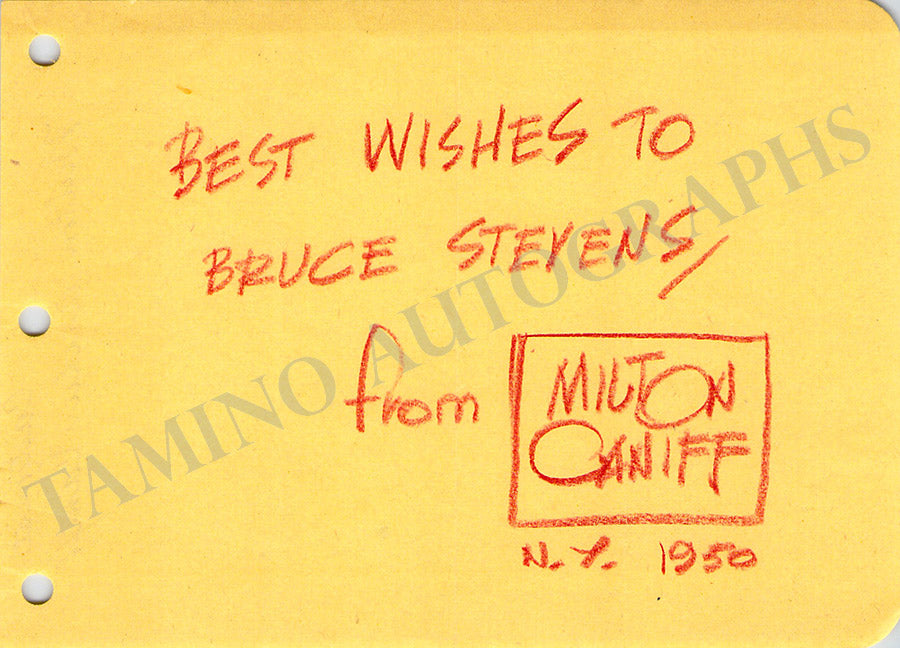 BEST WISHES TO
BRUCE STEVENS,
from MILTON
CANIFF
N.Y. 1950
TAMINO AUTOGRAPHS